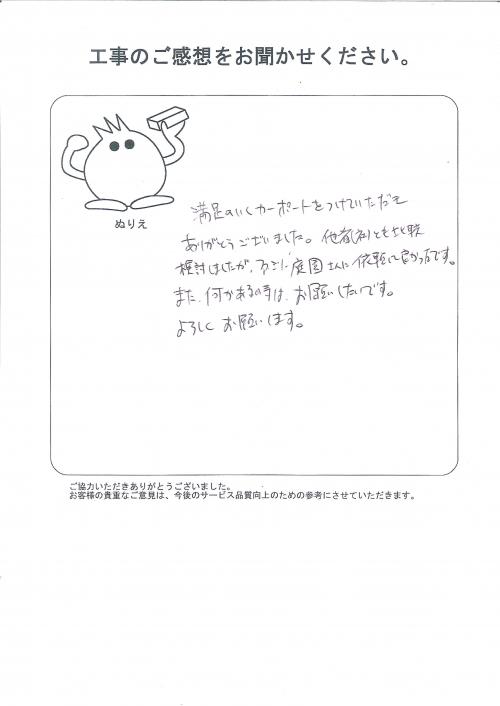 工事のご感想をお聞かせください。
ぬりえ
満足のいくカーポートをつけていただき
ありがとうございました。他数社とも比較
検討しましたが、庭園さんに依頼して良かったです。
また、何かある時は、お願いしたいです。
よろしくお願いします。
ご協力いただきありがとうございました。
お客様の貴重なご意見は、今後のサービス品質向上のための参考にさせていただきます。